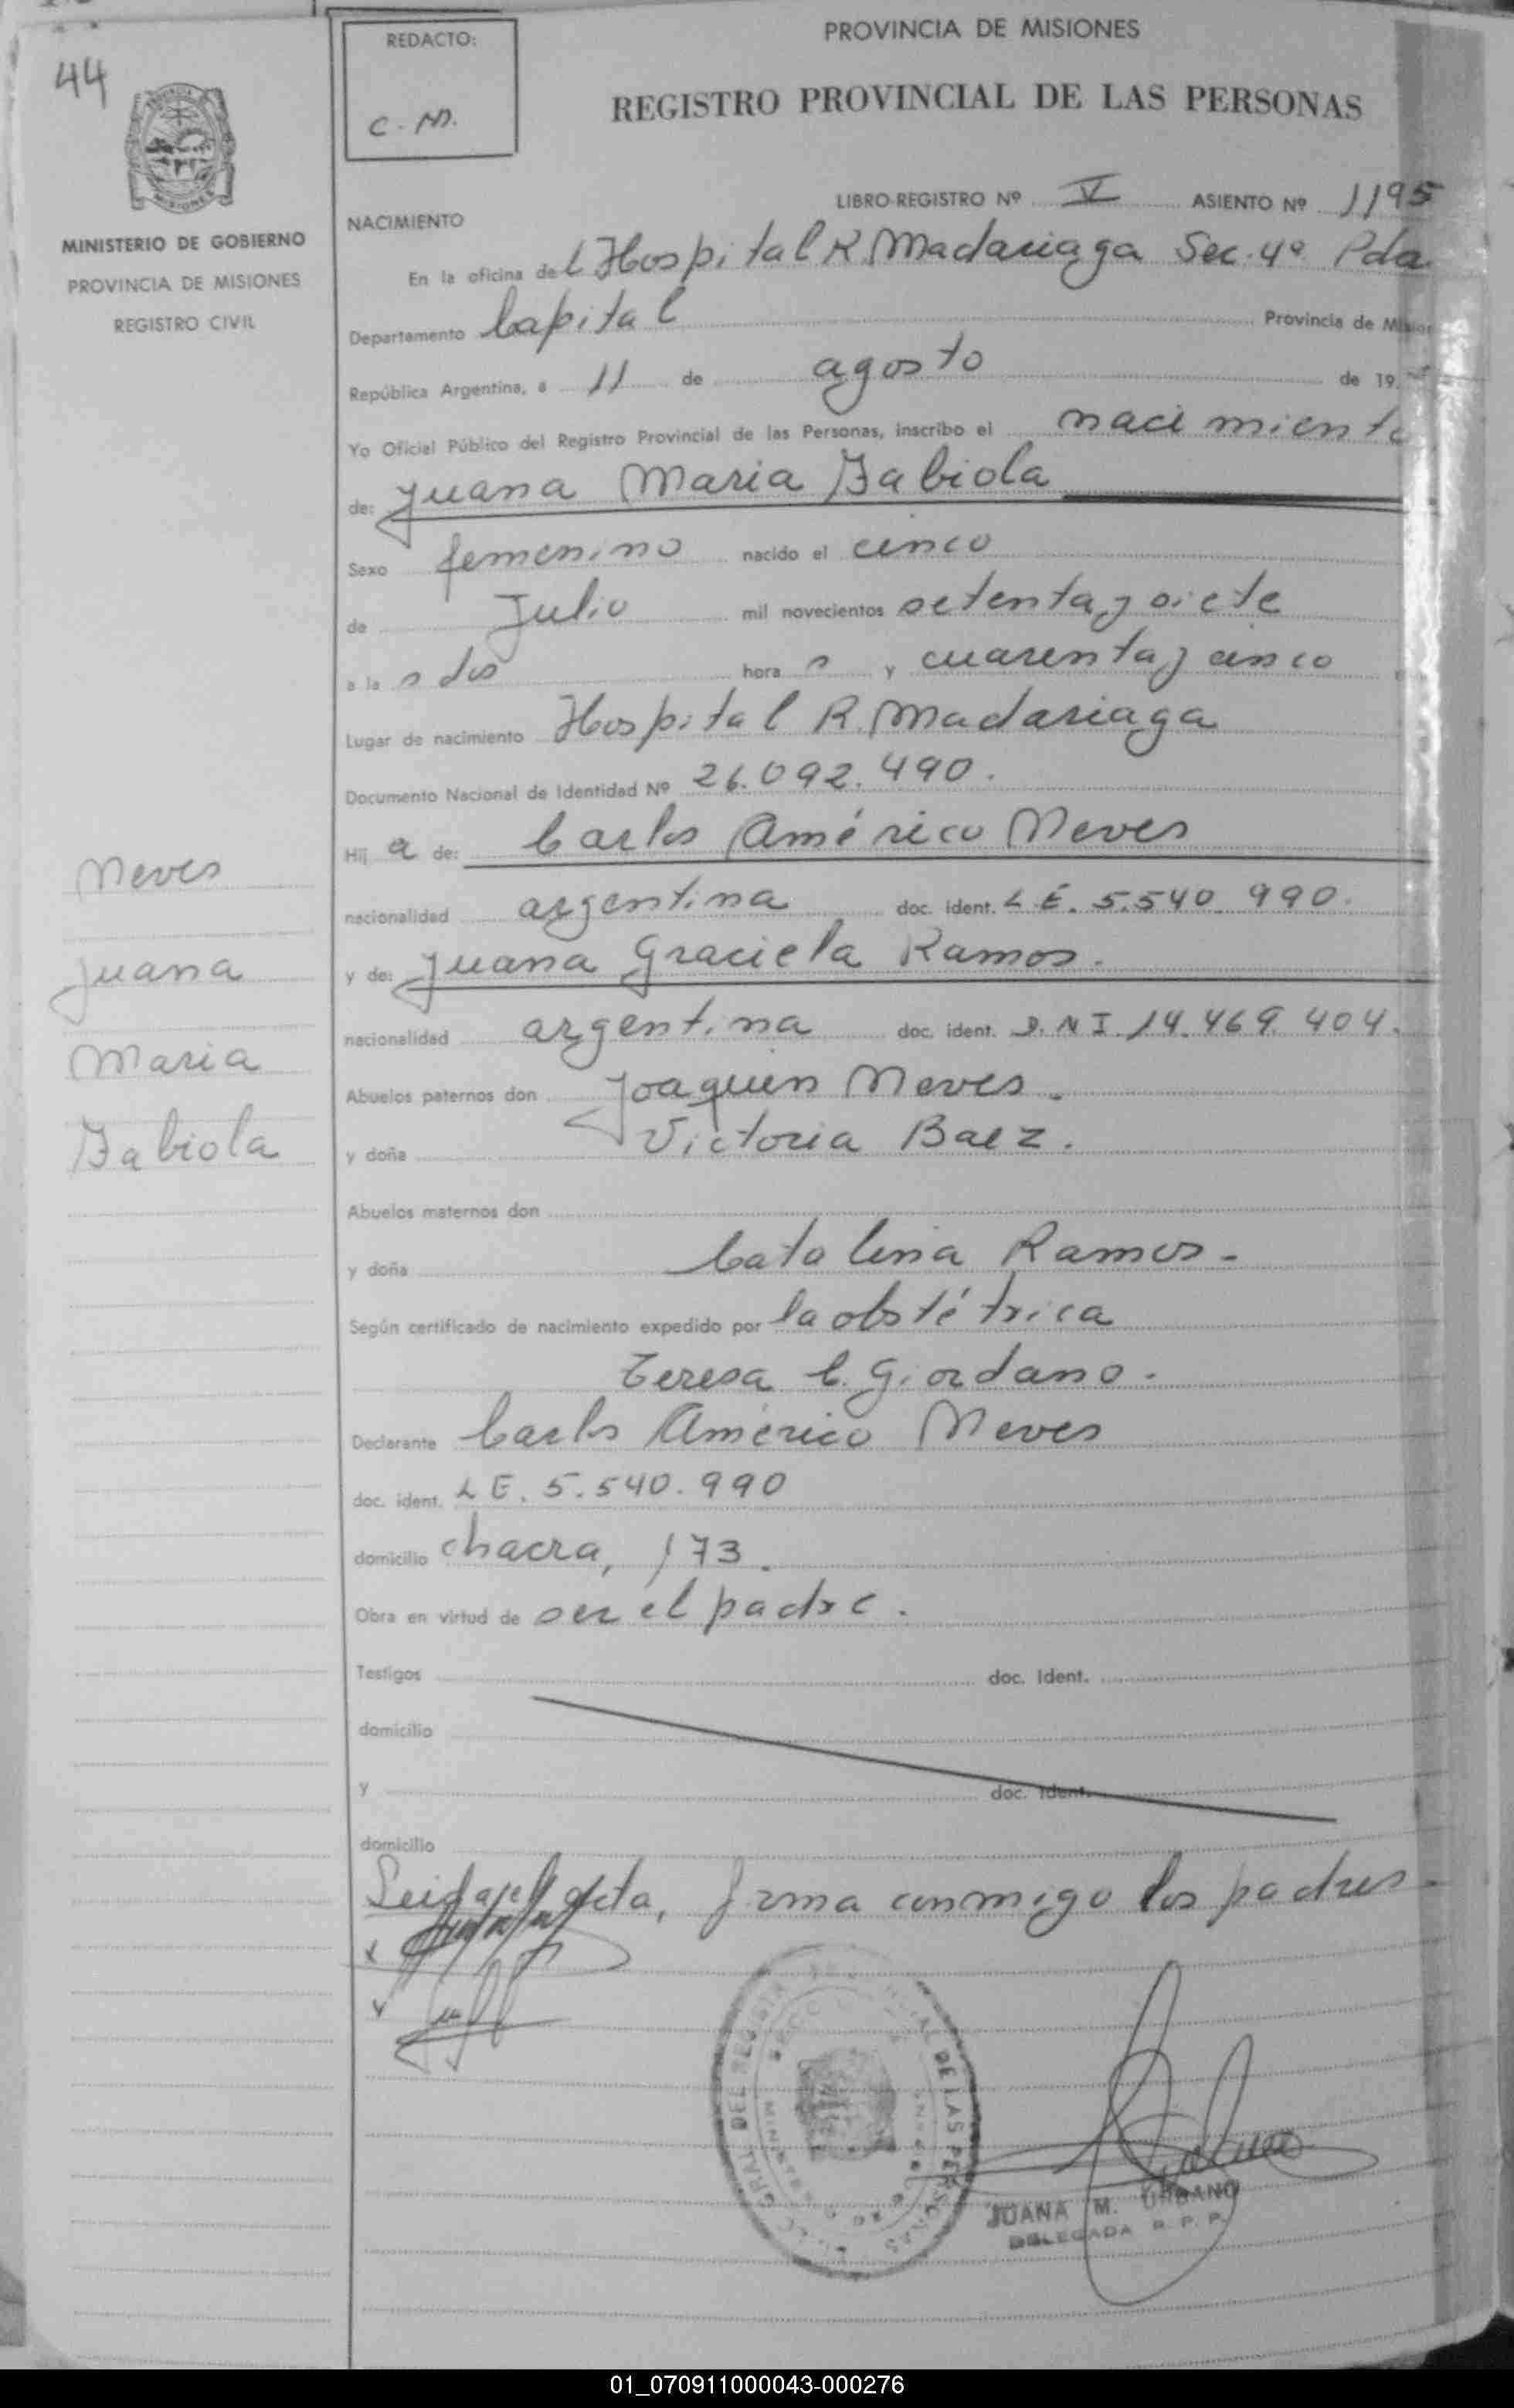 44
REDACTO:
C - M.
PROVINCIA DE MISIONES
REGISTRO PROVINCIAL DE LAS PERSONAS
MINISTERIO DE GOBIERNO
PROVINCIA DE MISIONES
REGISTRO CIVIL
LIBRO-REGISTRO Nº V ASIENTO Nº 1195
NACIMIENTO
En la oficina del Hospital R. Madariaga Sec. 4ª Pda
Departamento Capital Provincia de
República Argentina, a 11 de agosto de 19
Yo Oficial Público del Registro Provincial de las Personas, inscribo el nacimiento
de: Juana Maria Fabiola
Sexo femenino nacido el cinco
de Julio mil novecientos setenta y siete
a las dos horas y cuarenta y cinco
Lugar de nacimiento Hospital R. Madariaga
Documento Nacional de Identidad Nº 26.092.490.
Hija de: Carlos Américo Neves
nacionalidad argentina doc. ident. L E. 5.540.990.
y de: Juana Graciela Ramos.
nacionalidad argentina doc. ident. D.N I. 14.469.404.
Abuelos paternos don Joaquin Neves.
y doña Victoria Baez.
Abuelos maternos don
y doña Catalina Ramos-
Según certificado de nacimiento expedido por la obstétrica
Teresa C. Giordano.
Declarante Carlos Américo Neves
doc. ident. L E. 5.540.990
domicilio chacra, 173.
Obra en virtud de ser el padre.
Testigos doc. Ident.
domicilio
y doc. Ident.
domicilio
Leida el Acta, firma conmigo los padres-
x
x
Neves
Juana
Maria
Fabiola
GRAL DEL REGISTR DE LAS PERSONAS
JUANA M. URBANO
DELEGADA R. P. P.
01_070911000043-000276